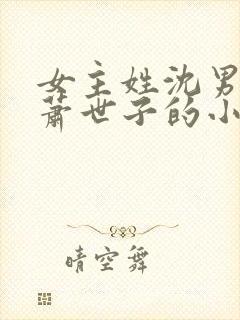 女主姓沈男
萧世子的小
晴空舞